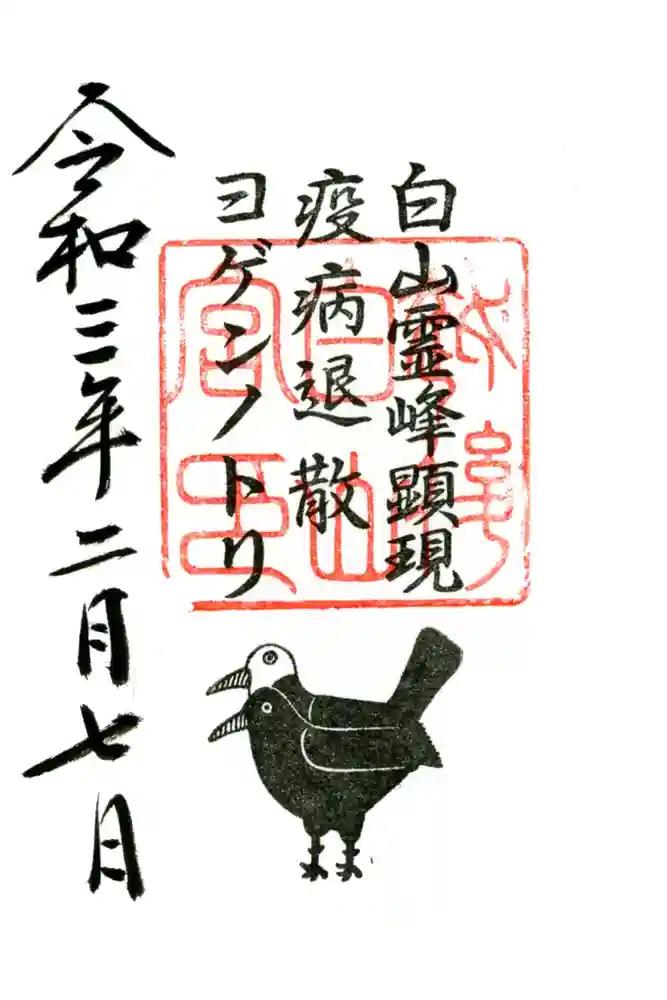 白山霊峰顕現
疫病退散
ヨゲンノトリ
令和三年二月七日
白山
宮印